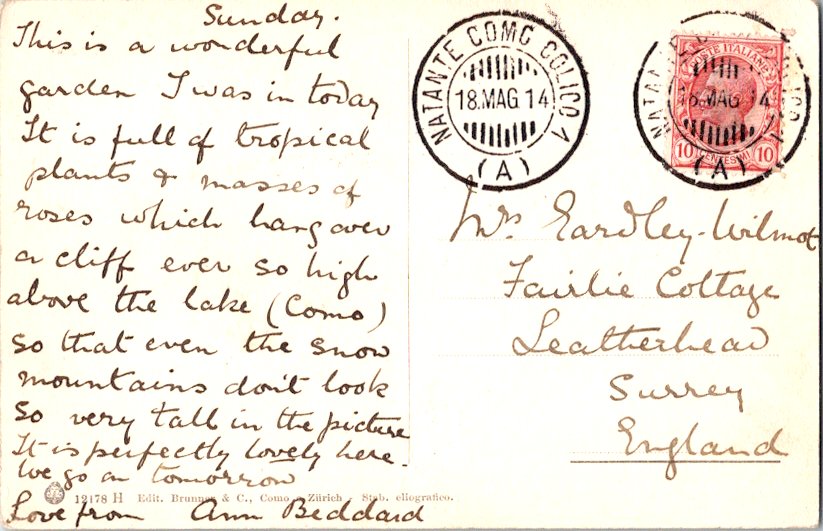 Sunday.
This is a wonderful
garden I was in today
It is full of tropical
plants & masses of
roses which hang over
a cliff ever so high
above the lake (Como)
so that even the snow
mountains don't look
so very tall in the picture
It is perfectly lovely here.
We go on tomorrow
Love from Ann Beddard
12178 H Edit. Brunner & C., Como - Zürich - Stab. eliografico.
NATANTE COMO COLICO 1
18.MAG.14
(A)
POSTE ITALIANE
10 CENTESIMI 10
NATANTE COLICO 1
18.MAG.14
(A)
Mrs Eardley-Wilmot
Fairlie Cottage
Leatherhead
Surrey
England